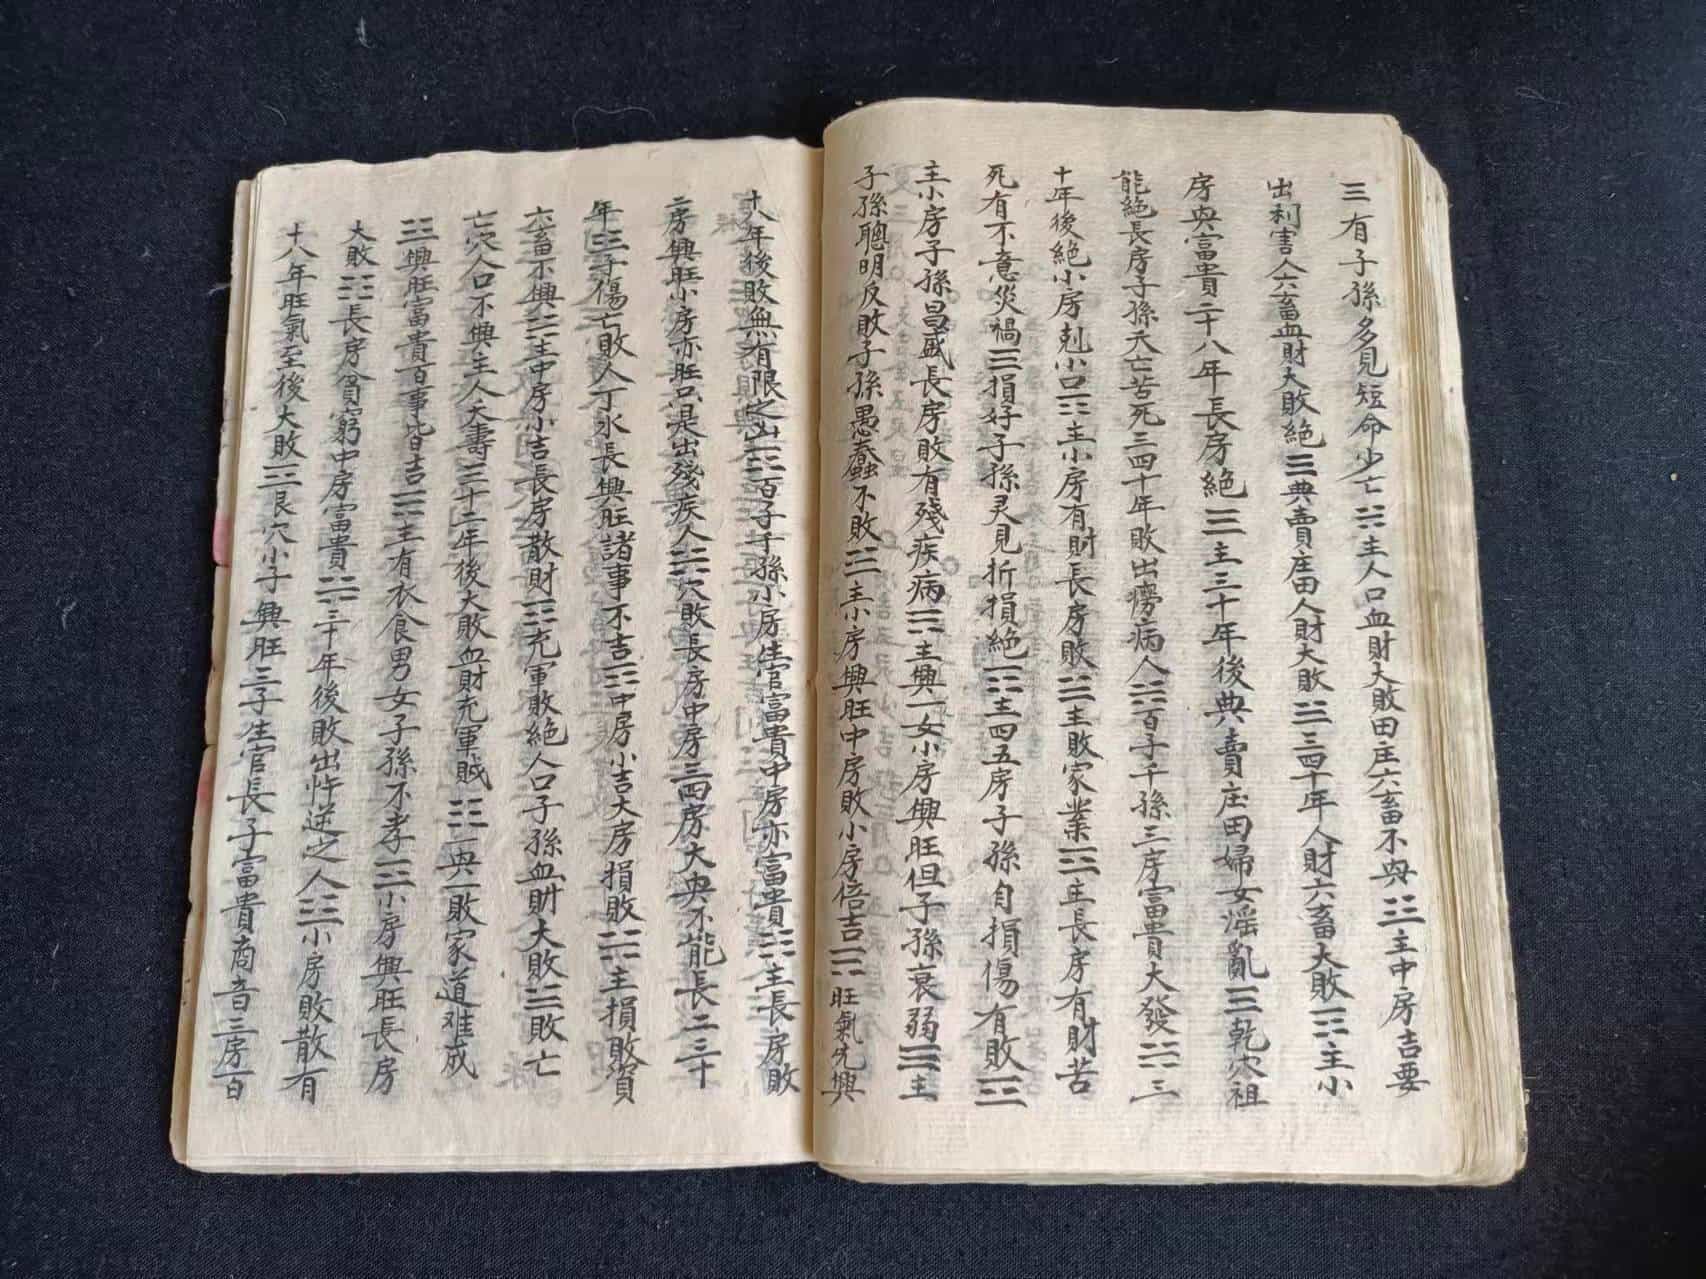 三有子孫多見短命少亡 主人口血財大敗田庄六畜不興 主中房吉要
出利害人六畜血財大敗絕 典賣庄田人財大敗 三四十年人財六畜大敗 主小
房興富貴二十八年長房絕 主三十年後典賣庄田婦女淫亂 乾穴祖
能絕長房子孫夭亡苦死三四十年敗出癆病人 百子千孫三房富貴大發 三
十年後絕小房剋小口 主小房有財長房敗 主敗家業 主長房有財苦
死有不意災禍 損好子孫灵見折損絕 主四五房子孫自損傷有敗
主小房子孫昌盛長房敗有殘疾病 主興一女小房興旺但子孫衰弱 主
子孫聰明反敗子孫愚蠢不敗 主小房興旺中房敗小房倍吉 旺氣先興
十八年後敗無有限之山 百子千孫小房生官富貴中房亦富貴 主長房敗
二房興旺小房亦旺只是出殘疾人 穴敗長房中房三四房大央不能長二三十
年 子傷亡敗人丁永長興旺諸事不吉 中房小吉大房損敗 主損敗貧
六畜不興 主中房小吉長房散財 充軍敗絕人口子孫血財大敗 敗亡
亡穴人口不興主人夭壽三十二年後大敗血財充軍賊 興一敗家道难成
興旺富貴百事皆吉 主有衣食男女子孫不孝 小房興旺長房
大敗 長房貧窮中房富貴 三十年後敗出忤逆之人 小房敗散有
十八年旺氣至後大敗 艮穴小子興旺三子生官長子富貴商音三房百